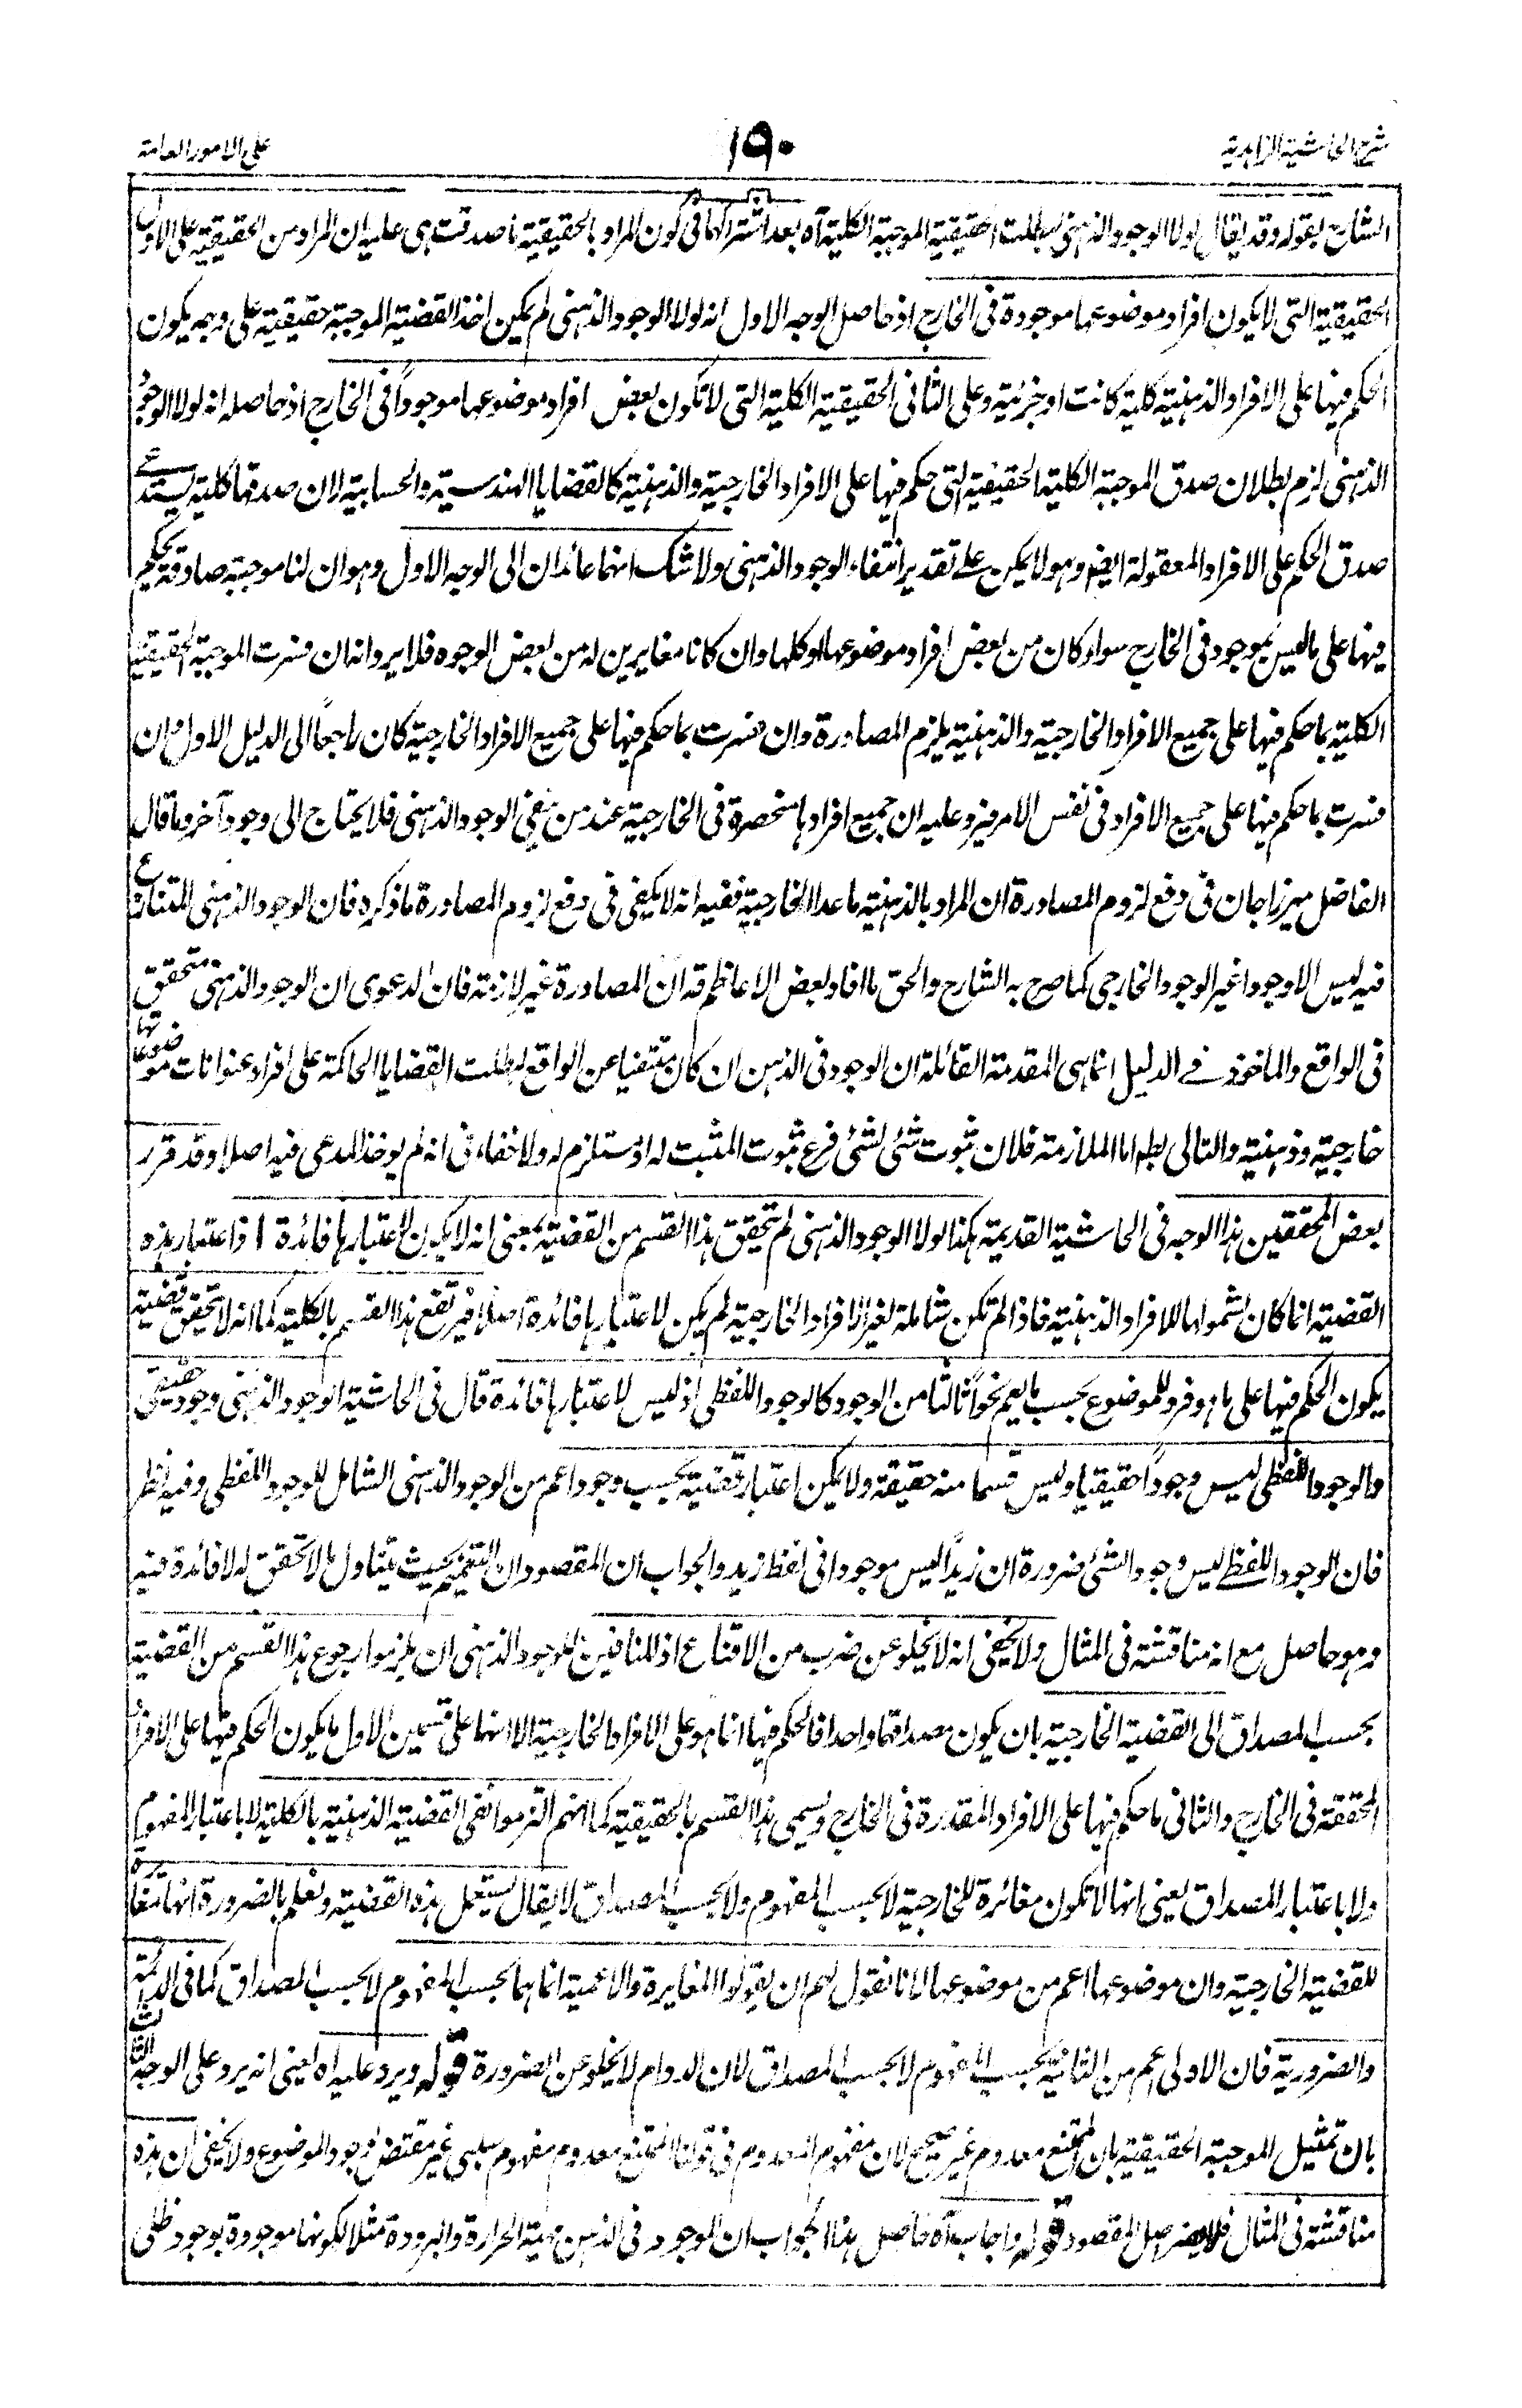 شرح الحاشية الزاهدية
١٩٠
على الامور العامة
الشارح بقوله وقد يقال لولا الوجود الذهنى لبطلت الحقيقية الموجبة الكلية آه بعد اشتراكهما فى كون المراد بالحقيقية ما صدقت هى عليه ان المراد من الحقيقية على الاول
الحقيقية التى لا يكون افراد موضوعها موجودة فى الخارج اذ حاصل الوجه الاول انه لولا الوجود الذهنى لم يمكن اخذ القضية الموجبة حقيقية على وجه يكون
الحكم فيها على الافراد الذهنية كلية كانت او جزئية وعلى الثانى الحقيقية الكلية التى لا تكون بعض افراد موضوعها موجوداً فى الخارج اذ حاصله انه لولا الوجود
الذهنى لزم بطلان صدق الموجبة الكلية الحقيقية التى حكم فيها على الافراد الخارجية والذهنية كالقضايا الهندسية والحسابية لان صدقها كلية يستدعى
صدق الحكم على الافراد المعقولة ايضا وهو لا يمكن على تقدير انتفاء الوجود الذهنى ولا شك انهما عائدان الى الوجه الاول وهو ان لنا موجبة صادقة يحكم
فيها على ما ليس بموجود فى الخارج سواء كان من بعض افراد موضوعها او كلها وان كانا مغايرين له من بعض الوجوه فلا يرد انه ان فسرت الموجبة الحقيقية
الكلية بما حكم فيها على جميع الافراد الخارجية والذهنية يلزم المصادرة وان فسرت بما حكم فيها على جميع الافراد الخارجية كان راجعاً الى الدليل الاول وان
فسرت بما حكم فيها على جميع الافراد فى نفس الامر فيرد عليه ان جميع افرادها منحصرة فى الخارجية عند من ينفى الوجود الذهنى فلا يحتاج الى وجود آخر وما قال
الفاضل ميرزا جان فى دفع لزوم المصادرة ان المراد بالذهنية ما عدا الخارجية ففيه انه لا يكفى فى دفع لزوم المصادرة ما ذكره فان الوجود الذهنى المتنازع
فيه ليس الا وجودا غير الوجود الخارجى كما صرح به الشارح والحق ما افاد بعض الاعاظم قد ان المصادرة غير لازمة فان الدعوى ان الوجود الذهنى متحقق
فى الواقع والماخوذ فى الدليل انما هى المقدمة القائلة ان الوجود فى الذهن ان كان منتفيا عن الواقع لبطلت القضايا الحاكمة على افراد عنوانات موضوعاتها
خارجية وذهنية والتالى بط اما الملازمة فلان ثبوت شئ لشئ فرع ثبوت المثبت له او مستلزم له ولا خفاء فى انه لم يوخذ المدعى فيه اصلا وقد قرر
بعض المحققين هذا الوجه فى الحاشية القديمة هكذا لولا الوجود الذهنى لم يتحقق هذا القسم من القضية بمعنى انه لا يكون لاعتبارها فائدة اذ اعتبار هذه
القضية انما كان لشمولها للافراد الذهنية فاذا لم تكن شاملة لغير الافراد الخارجية لم يكن لاعتبارها فائدة اصلا فيرتفع هذا القسم بالكلية كما انه لا يتحقق قضية
يكون الحكم فيها على ما هو فرد للموضوع بحسب ما يعم نحواً ثالثا من الوجود كالوجود اللفظى اذ ليس لاعتبارها فائدة قال فى الحاشية الوجود الذهنى وجود حقيقى
والوجود اللفظى ليس وجوداً حقيقيا وليس قسما منه حقيقة ولا يمكن اعتبار قضية بحسب وجود اعم من الوجود الذهنى الشامل للوجود اللفظى وفيه نظر
فان الوجود اللفظى ليس وجود الشئ ضرورة ان زيداً ليس موجودا فى لفظ زيد والجواب ان المقصود ان التعميم بحيث يتناول ما لا تحقق له لا فائدة فيه
وهو حاصل مع انه مناقشة فى المثال ولا يخفى انه لا يخلو عن ضرب من الاقناع اذ للنافين للوجود الذهنى ان يلزموا رجوع هذا القسم من القضية
بحسب المصداق الى القضية الخارجية بان يكون مصداقهما واحدا فالحكم فيها انما هو على الافراد الخارجية الا انها على قسمين الاول ما يكون الحكم فيها على الافراد
المحققة فى الخارج والثانى ما حكم فيها على الافراد المقدرة فى الخارج ويسمى هذا القسم بالحقيقية كما انهم التزموا نفى القضية الذهنية بالكلية لا باعتبار المفهوم
ولا باعتبار المصداق يعنى انها لا تكون مغائرة للخارجية لا بحسب المفهوم ولا بحسب المصداق لا يقال يستعمل هذه القضية ونعلم بالضرورة انها مغايرة
للقضية الخارجية وان موضوعها اعم من موضوعها لانا نقول لهم ان يقولوا المغايرة والاعمية انما هما بحسب المفهوم لا بحسب المصداق كما فى الدائمة
والضرورية فان الاولى اعم من الثانية بحسب المفهوم لا بحسب المصداق لان الدوام لا يخلو عن الضرورة قوله ويرد عليه اه يعنى انه يرد على الوجه الثالث
بان تمثيل الموجبة الحقيقية بان الممتنع معدوم غير صحيح لان مفهوم المعدوم فى قولنا الممتنع معدوم مفهوم سلبى غير مقتض لوجود الموضوع ولا يخفى ان هذه
مناقشة فى المثال فلا يضر اصل المقصود قوله واجاب آه حاصل هذا الجواب ان الموجود فى الذهن مهية الحرارة والبرودة مثلا لكونها موجودة بوجود ظلى